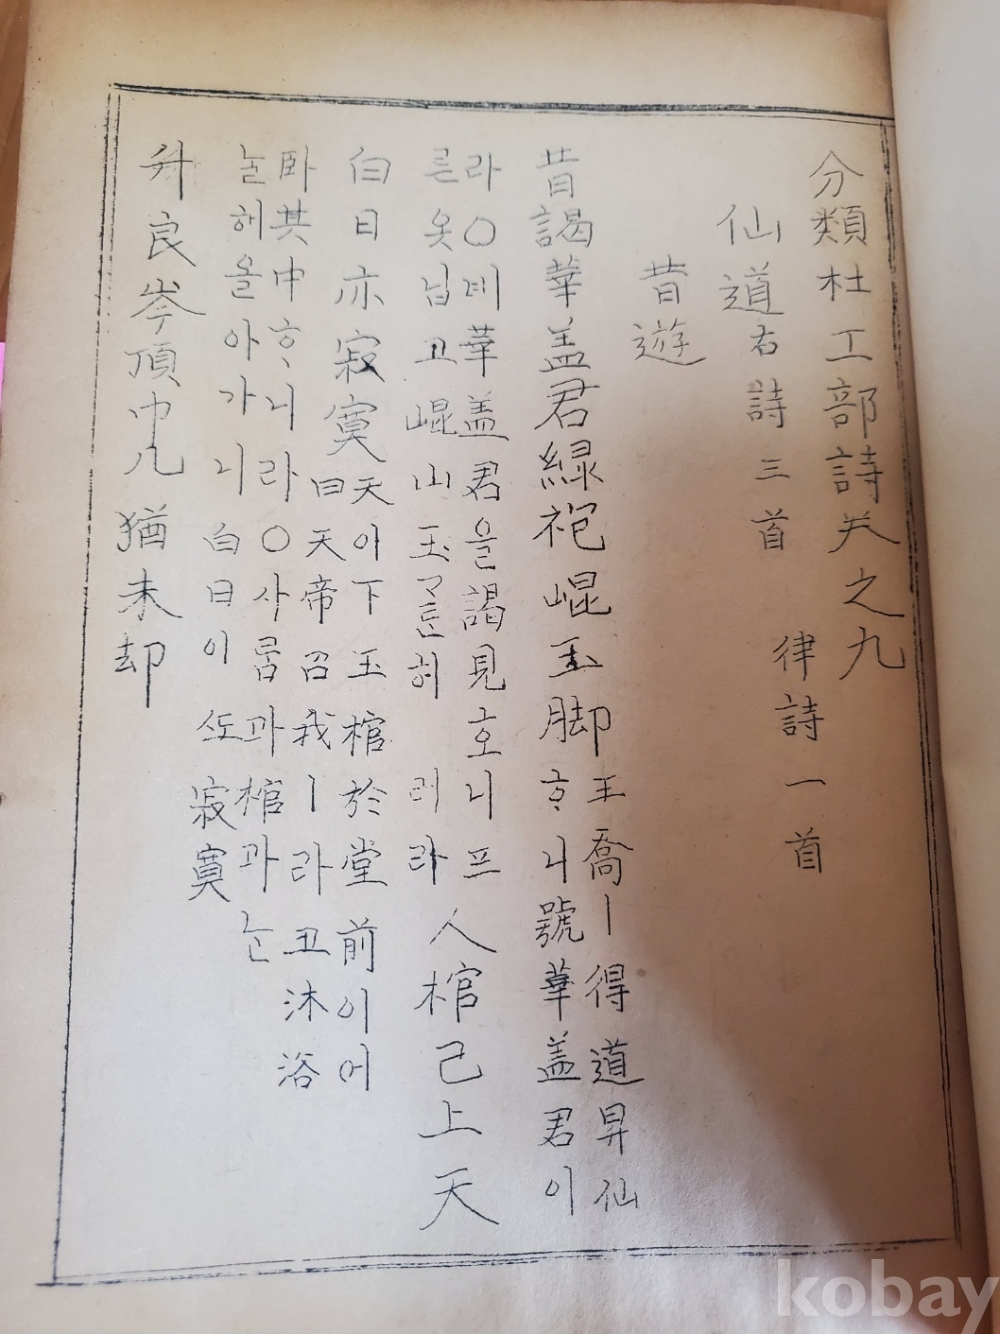 分類杜工部詩关之九
仙道 右詩三首 律詩一首
昔遊
昔謁華盖君綠袍崐玉脚
王喬ㅣ得道昇仙
ᄒᆞ니號華盖君이
라○녜華盖君을謁見호니프
른옷닙고崐山玉ᄀᆞᄐᆞᆫ허 러라
人棺己上天
白日亦寂寞
天이下玉棺於堂前이어
曰天帝召我ㅣ라고沐浴
卧其中ᄒᆞ니라○사ᄅᆞᆷ과棺과ᄂᆞᆫ
놀해올아가니白日이ᄯᅩ寂寞
升艮岑頂巾几猶未却
kobay